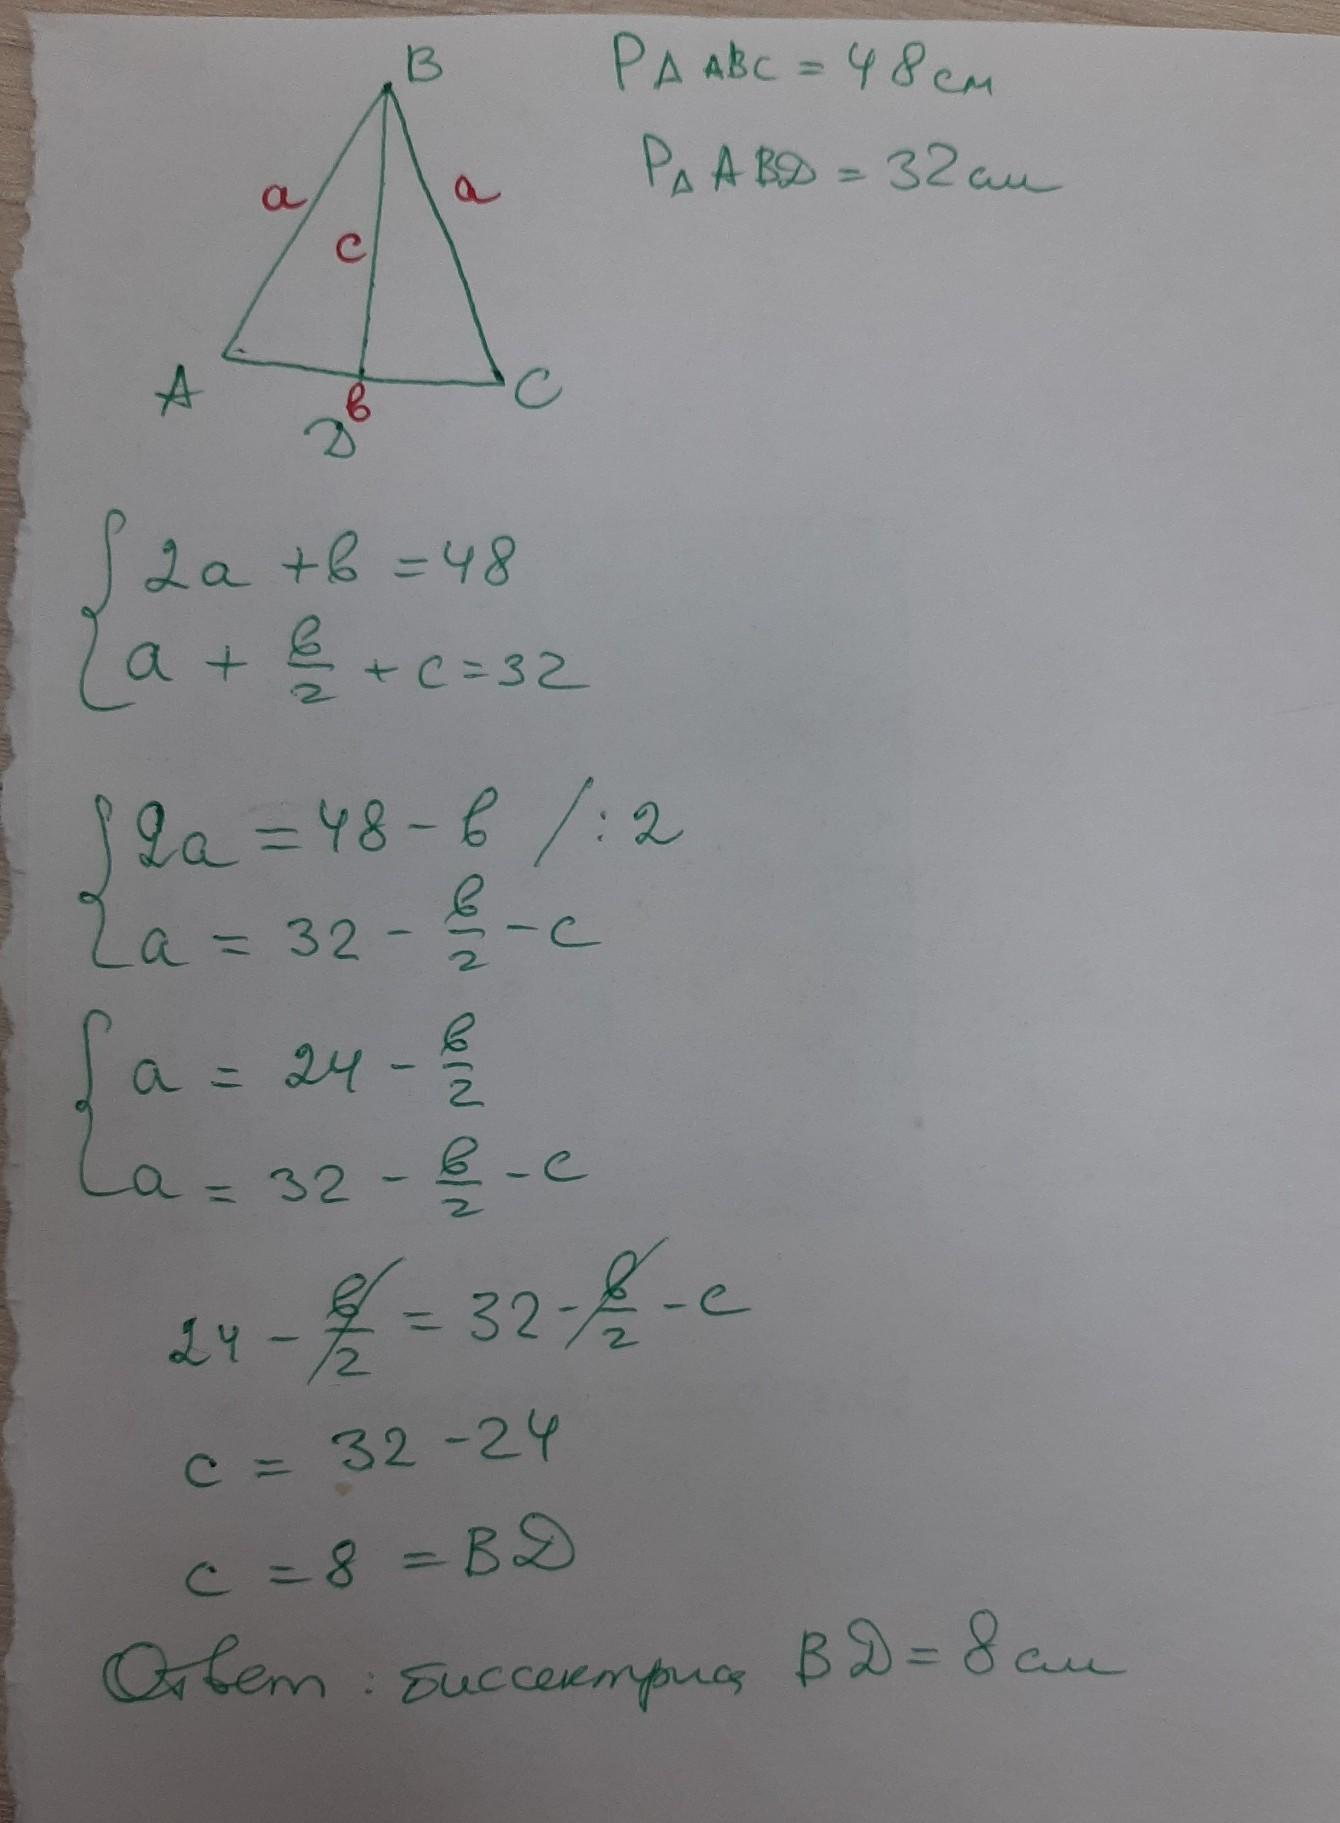 B
P△ ABC = 48см
P△ ABD = 32см
a a
c
A в C
D
{ 2a + в = 48
a + в/2 + c = 32
{ 2a = 48 - в /: 2
a = 32 - в/2 - c
{ a = 24 - в/2
a = 32 - в/2 - c
24 - в/2 = 32 - в/2 - c
c = 32 - 24
c = 8 = BD
Ответ: биссектриса BD = 8см